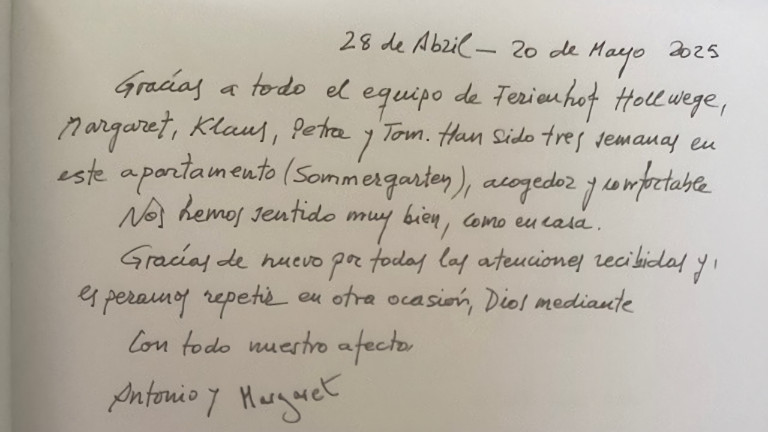 28 de Abril - 20 de Mayo 2025
Gracias a todo el equipo de Ferienhof Hollwege,
Margaret, Klaus, Petra y Tom. Han sido tres semanas en
este apartamento (Sommergarten), acogedor y comfortable
Nos hemos sentido muy bien, como en casa.
Gracias de nuevo por todas las atenciones recibidas y
esperamos repetir en otra ocasión, Dios mediante
Con todo nuestro afecto
Antonio y Margaret